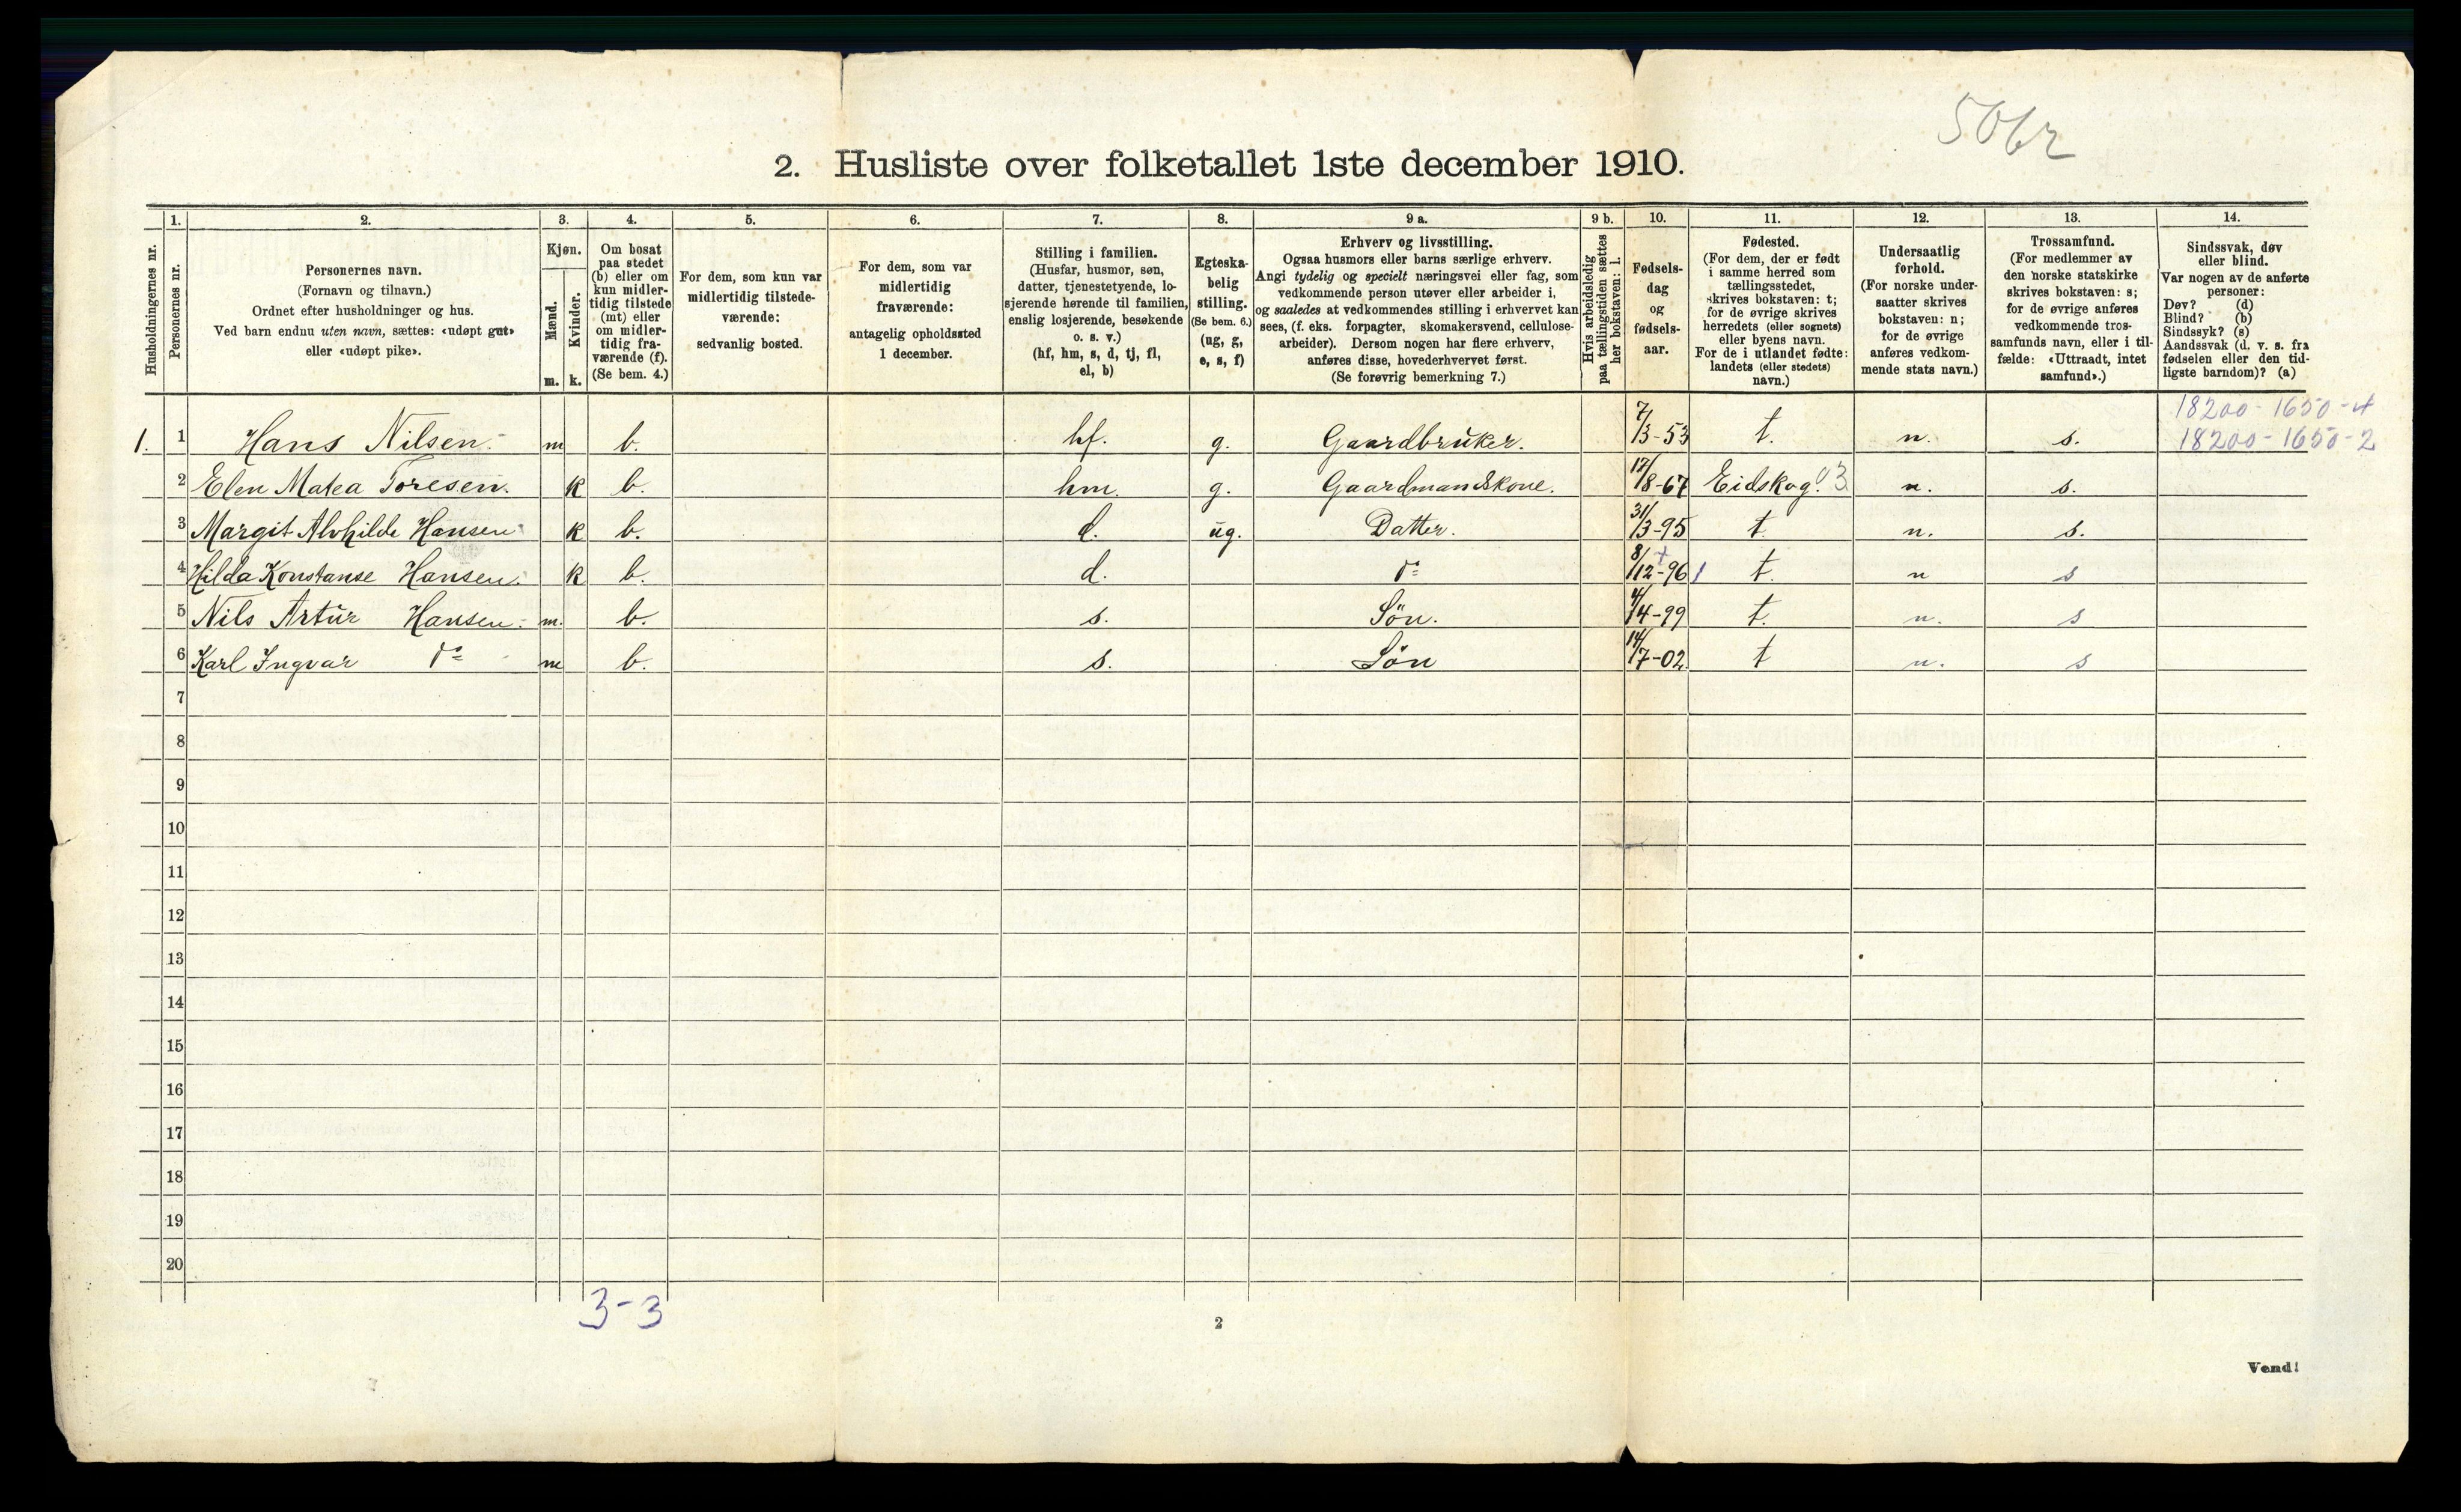 50br
2. Husliste over folketallet 1ste december 1910.
Husholdningernes nr.
1.
Personernes nr.
2.
Personernes navn.
(Fornavn og tilnavn.)
Ordnet efter husholdninger og hus.
Ved barn endnu uten navn, sættes: «udøpt gut»
eller «udøpt pike».
3.
Kjøn.
Mænd.
Kvinder.
m. k.
4.
Om bosat
paa stedet
(b) eller om
kun midler-
tidig tilstede
(mt) eller
om midler-
tidig fra-
værende (f).
(Se bem. 4.)
5.
For dem, som kun var
midlertidig tilstede-
værende:
sedvanlig bosted.
6.
For dem, som var
midlertidig
fraværende:
antagelig opholdssted
1 december.
7.
Stilling i familien.
(Husfar, husmor, søn,
datter, tjenestetyende, lo-
sjerende hørende til familien,
enslig losjerende, besøkende
o. s. v.)
(hf, hm, s, d, tj, fl,
el, b)
8.
Egteska-
belig
stilling.
(Se bem. 6.)
(ug, g,
e, s, f)
9 a.
Erhverv og livsstilling.
Ogsaa husmors eller barns særlige erhverv.
Angi tydelig og specielt næringsvei eller fag, som
vedkommende person utøver eller arbeider i,
og saaledes at vedkommendes stilling i erhvervet kan
sees, (f. eks. forpagter, skomakersvend, cellulose-
arbeider). Dersom nogen har flere erhverv,
anføres disse, hovederhvervet først.
(Se forøvrig bemerkning 7.)
9 b.
Hvis arbeidsledig
paa tællingstiden sættes
her bokstaven: l.
10.
Fødsels-
dag
og
fødsels-
aar.
11.
Fødested.
(For dem, der er født
i samme herred som
tællingsstedet,
skrives bokstaven: t;
for de øvrige skrives
herredets (eller sognets)
eller byens navn.
For de i utlandet fødte:
landets (eller stedets)
navn.)
12.
Undersaatlig
forhold.
(For norske under-
saatter skrives
bokstaven: n;
for de øvrige
anføres vedkom-
mende stats navn.)
13.
Trossamfund.
(For medlemmer av
den norske statskirke
skrives bokstaven: s;
for de øvrige anføres
vedkommende tros-
samfunds navn, eller i til-
fælde: «Uttraadt, intet
samfund».)
14.
Sindssvak, døv
eller blind.
Var nogen av de anførte
personer:
Døv? (d)
Blind? (b)
Sindssyk? (s)
Aandssvak (d. v. s. fra
fødselen eller den tid-
ligste barndom)? (a)
18200-1650-4
1. 1 Hans Nilsen m b. hf. g. Gaardbruker. 7/3-53 t. n. s. 18200-1650-2
2 Elen Matea Toresen. k b. hm. g. Gaardmandskone. 17/8-67 Eidskog. 03 n. s.
3 Margit Alvhilde Hansen k b. d. ug. Datter. 31/3-95 t. n. s.
4 Hilda Konstanse Hansen. k b. d. do 8/12-96 1 t. n s
5 Nils Artur Hansen. m. b. s. Søn. 4/4-99 t. n. s
6 Karl Ingvar do m b. s. Søn 14/7-02 t n. s
7
8
9
10
11
12
13
14
15
16
17
18
19
20
3-3
2
Vend!